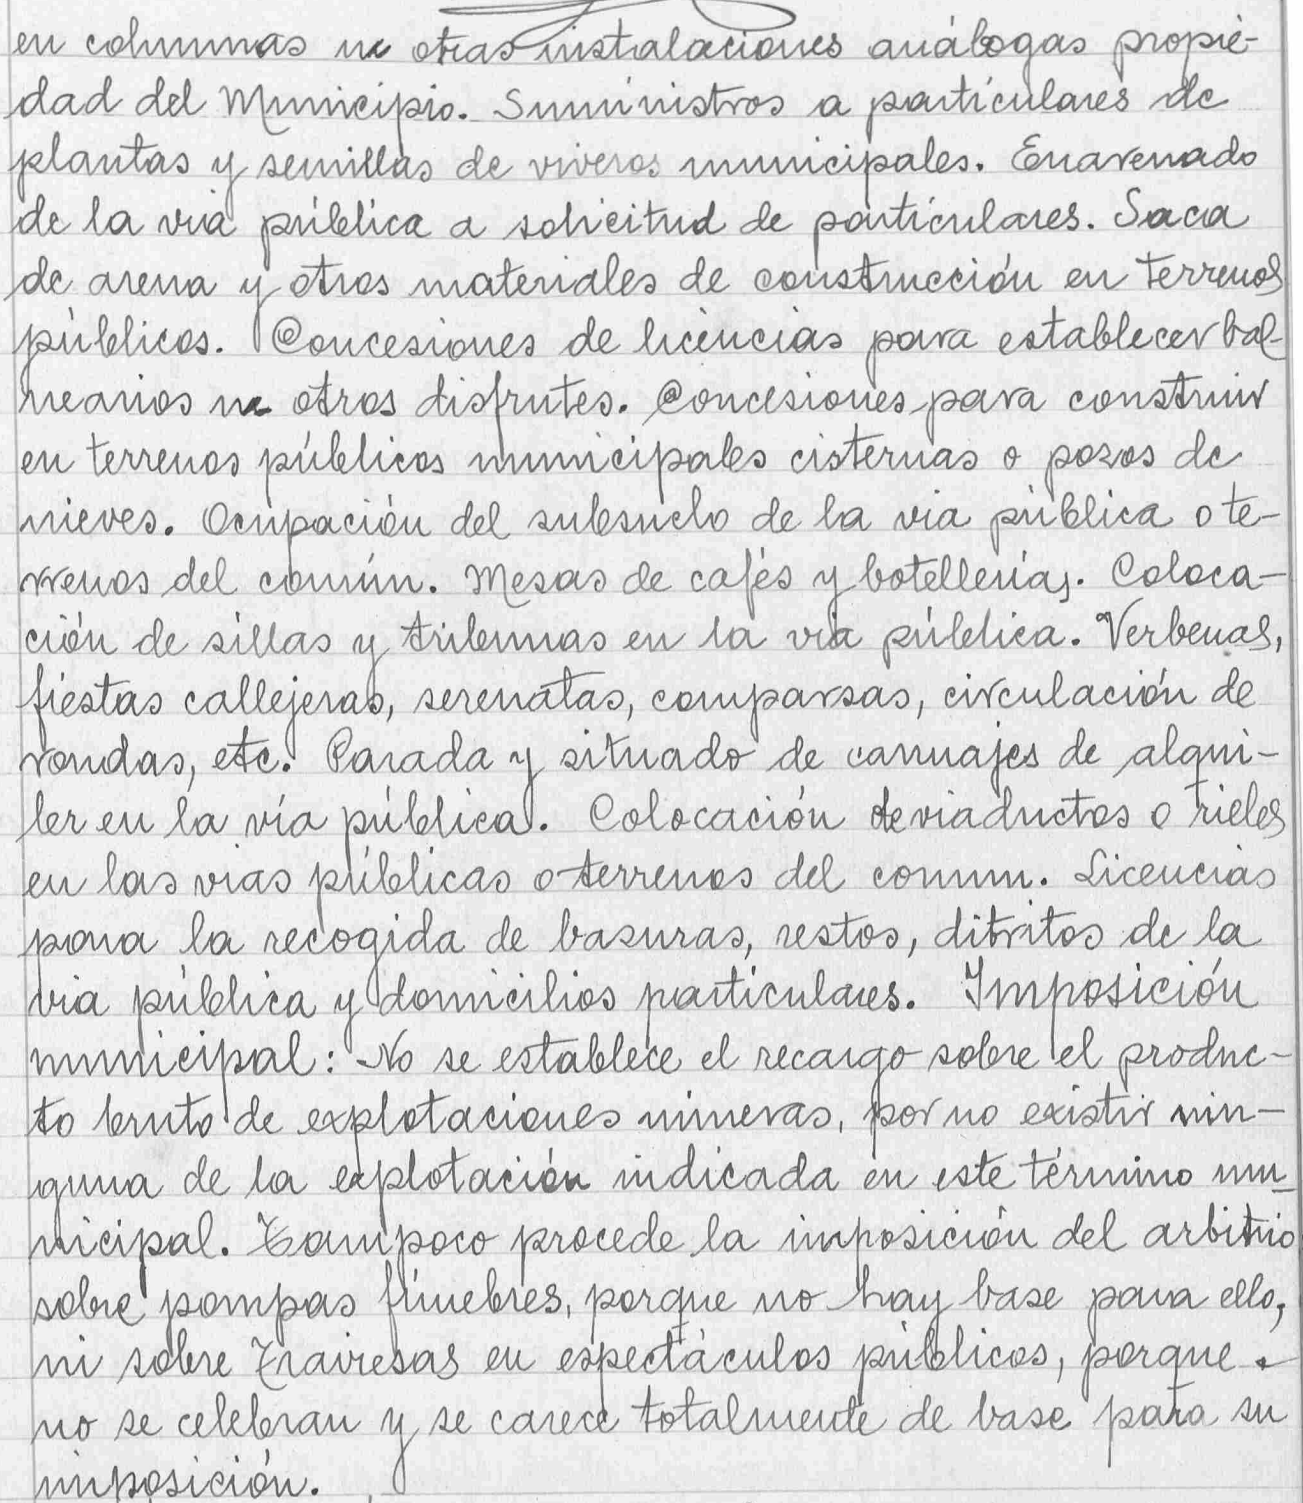 en columnas u otras instalaciones análogas propie-
dad del Municipio. Suministros a particulares de
plantas y semillas de viveros municipales. Enarenado
de la via pública a solicitud de particulares. Saca
de arena y otros materiales de construcción en terrenos
públicos. Concesiones de licencias para establecer bal-
nearios u otros disfrutes. Concesiones para construir
en terrenos públicos municipales cisternas o pozos de
nieves. Ocupación del subsuelo de la via pública o te-
rrenos del común. Mesas de cafés y botellerías. Coloca-
ción de sillas y tribunas en la via pública. Verbenas,
fiestas callejeras, serenatas, comparsas, circulación de
rondas, etc. Parada y situado de carruajes de alqui-
ler en la vía pública. Colocación de viaductos o rieles
en las vias públicas o terrenos del comun. Licencias
para la recogida de basuras, restos, ditritos de la
via pública y domicilios particulares. Imposición
municipal: No se establece el recargo sobre el produc-
to bruto de explotaciones mineras, por no existir nin-
guna de la explotación indicada en este término mu-
nicipal. Tampoco procede la imposición del arbitrio
sobre pompas fúnebres, porque no hay base para ello,
ni sobre Traviesas en espectáculos públicos, porque
no se celebran y se carece totalmente de base para su
imposición.